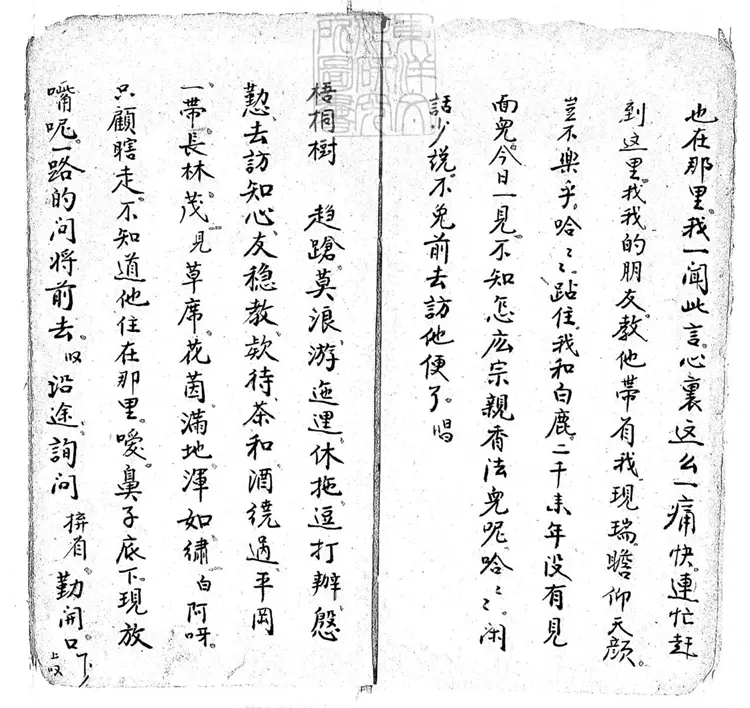 也在那里。我一闻此言。心裏这么一痛快。連忙赶
到这里。找我的朋友。教他帶着我。現瑞瞻仰天颜。
豈不樂乎。哈〻〻。跕住。我和白鹿。二千来年没有見
面兒。今日一見。不知怎広宗親香法兒呢。哈〻〻。闲
話少説。不免前去訪他便了。唱
梧桐樹 趋蹌莫浪游。迤逦休拖逗。打辦慇
懃去訪知心友。穏教欵待茶和酒。繞過平岡
一帶。長林茂。見草席花茵滿地渾如繡。白阿呀。
只顧瞎走。不知道他住在那里。噯。鼻子底下。現放
嘴呢。一路的问将前去。
沿途詢问 拚着勤開口。下